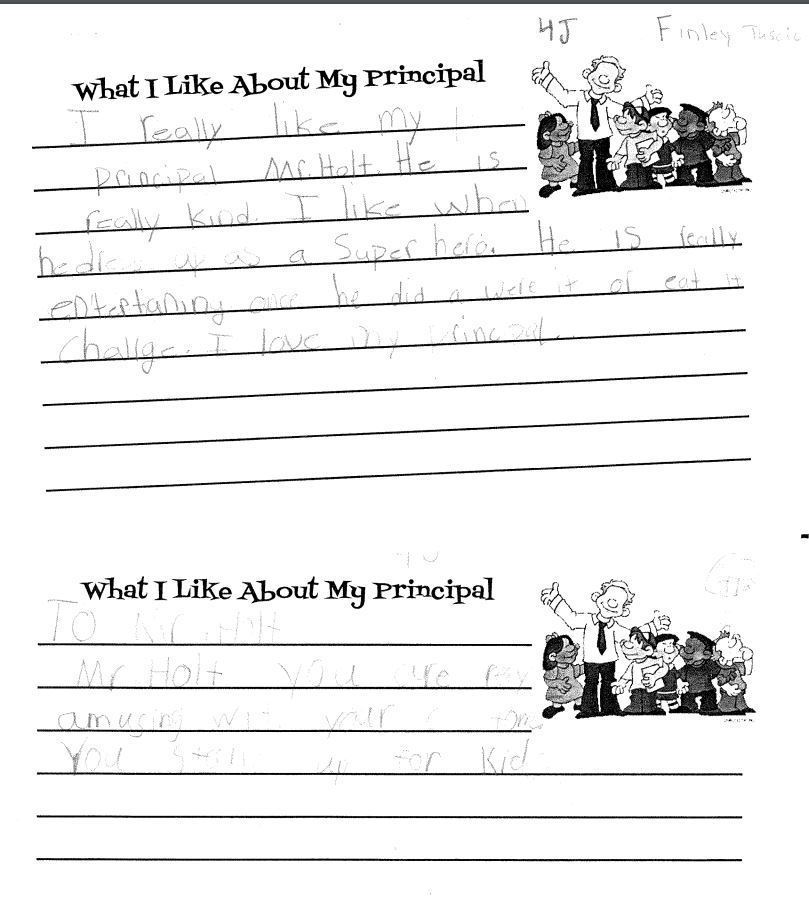 4J Finley
What I Like About My Principal
I really like my
principal Mr. Holt. He is
really kind. I like when
he up as a Super hero. He is really
entertaning once he did a were it or eat it
challge. I love my principal.
What I Like About My Principal
TO Mr. Holt
Mr Holt you are
amusing your
You stand up for Kid